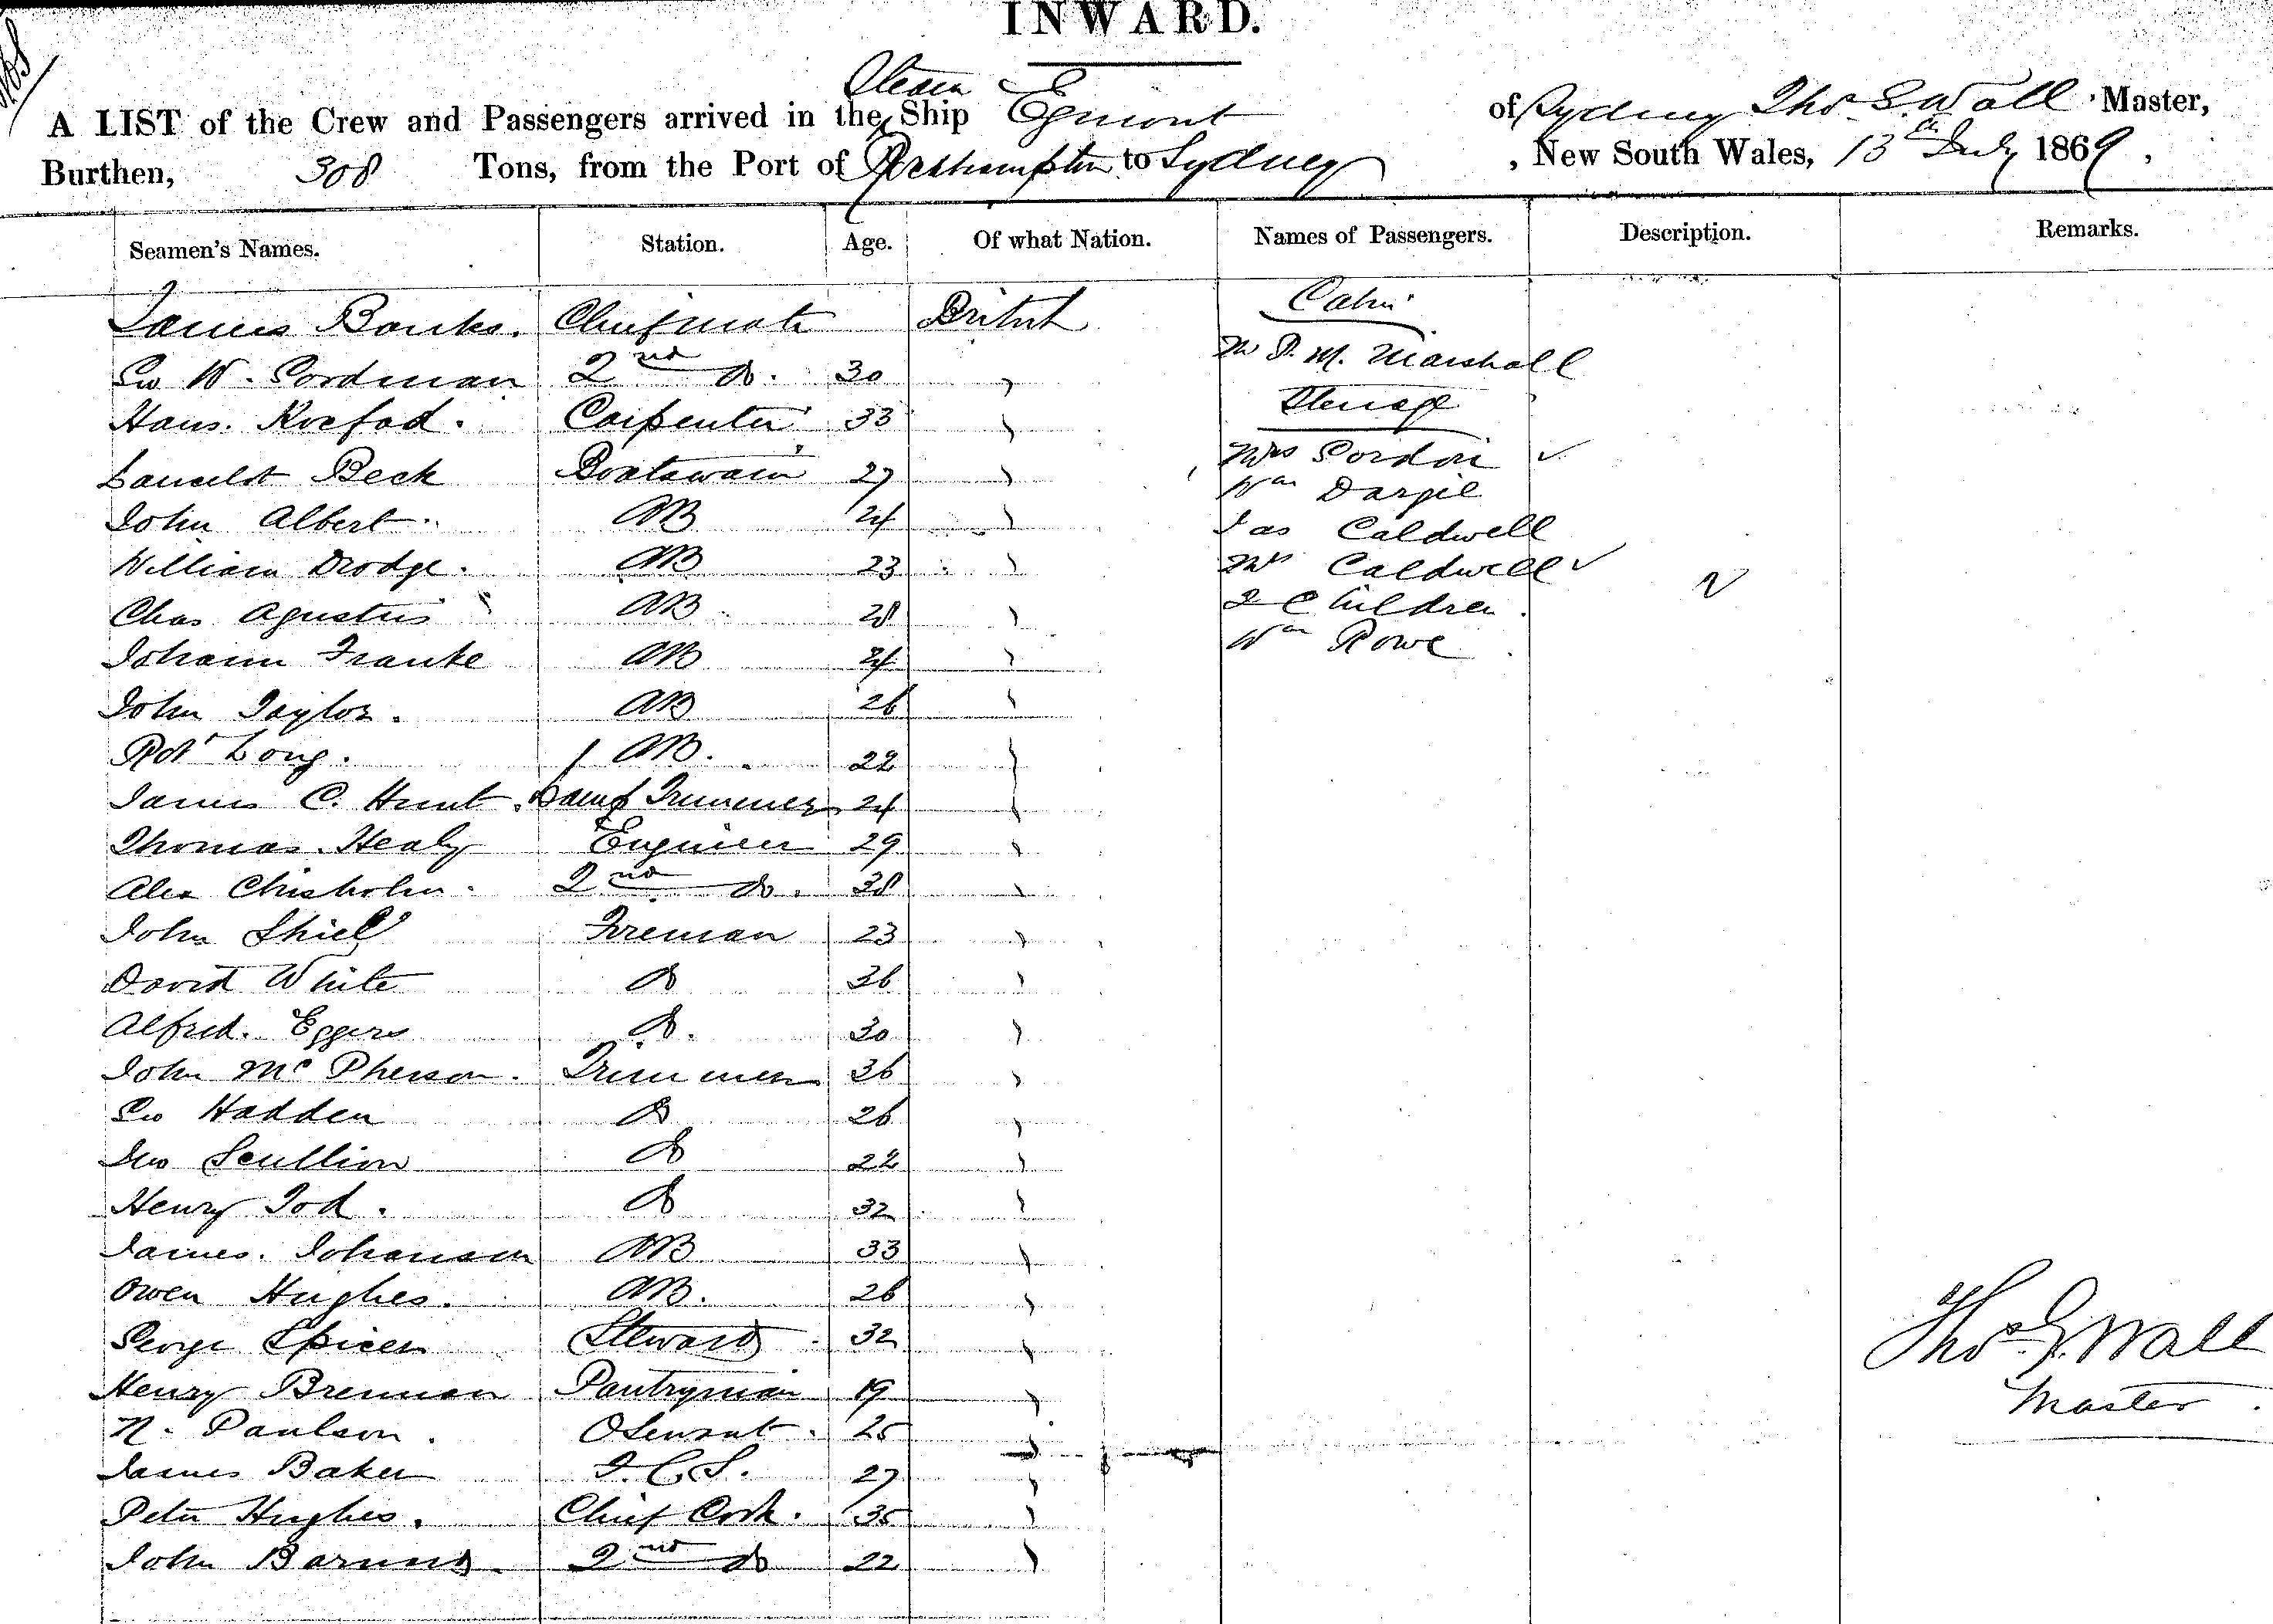 INWARD.
A LIST of the Crew and Passengers arrived in the Steam Ship Egmont of Sydney Thos G. Wall Master,
Burthen, 308 Tons, from the Port of Rockhampton to Sydney, New South Wales, 13th July 1869,
Seamen's Names. Station. Age. Of what Nation. Names of Passengers. Description. Remarks.
James Banks. Chief mate British Cabin
Geo W. Gordman 2nd do. 30 " Mr P. M. Marshall
Hans. Kofod. Carpenter 33 " Steerage
Lancelot Beck Boatswain 27 " Mrs Gordon ✓
John Albert AB 24 " Wm Dargie
William Drodge. AB 23 " Jas Caldwell
Chas Agustus AB 28 " Mrs Caldwell ✓
Johann Franke AB 24 " 2 Children.
John Taylor. AB 26 " Wm Rowe
Robt Long. AB. 22 "
James C. Hunt. Lamp Trimmer 24 "
Thomas Healy Engineer 29 "
Alex Chisholm. 2nd do. 38 "
John Shiel Fireman 23 "
David White do 36 "
Alfred. Eggers do. 30 "
John McPherson. Trimmer 36 "
Geo Hadden do 26 "
Jno Scullion do 22 "
Henry Tod. do 32 "
James. Johanson AB 33 "
Owen Hughes. AB. 26 "
George Spicer Steward 32 " Thos G. Wall
Henry Brennan Pantryman 19 " Master.
N. Paulson. 25 "
James Baker F.C.S. 27 "
Peter Hughes. Chief Cook. 35 "
John Barnes 2nd do 22 "